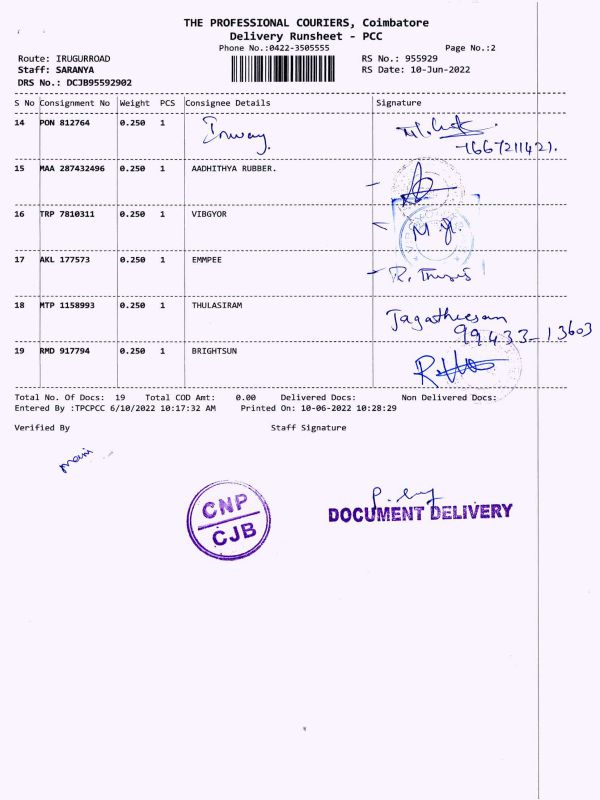 THE PROFESSIONAL COURIERS, Coimbatore
Delivery Runsheet - PCC
Phone No.:0422-3505555 Page No.:2
Route: IRUGURROAD RS No.: 955929
Staff: SARANYA RS Date: 10-Jun-2022
DRS No.: DCJB95592902
S No Consignment No Weight PCS Consignee Details Signature
14 PON 812764 0.250 1
7667211421.
15 MAA 287432496 0.250 1 AADHITHYA RUBBER.
16 TRP 7810311 0.250 1 VIBGYOR
17 AKL 177573 0.250 1 EMMPEE
18 MTP 1158993 0.250 1 THULASIRAM Jagatheesan
99433-13603
19 RMD 917794 0.250 1 BRIGHTSUN
Total No. Of Docs: 19 Total COD Amt: 0.00 Delivered Docs: Non Delivered Docs:
Entered By :TPCPCC 6/10/2022 10:17:32 AM Printed On: 10-06-2022 10:28:29
Verified By Staff Signature
CNP
CJB
DOCUMENT DELIVERY